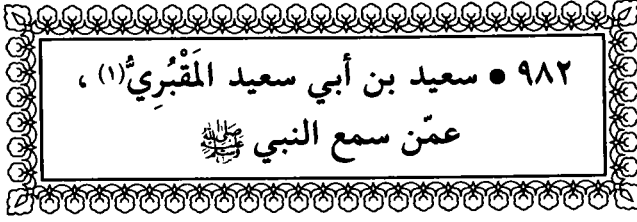 ٩٨٢ • سعيد بن أبي سعيد المَقْبُرِيُّ(١) ،
عمّن سمع النبي ﷺ